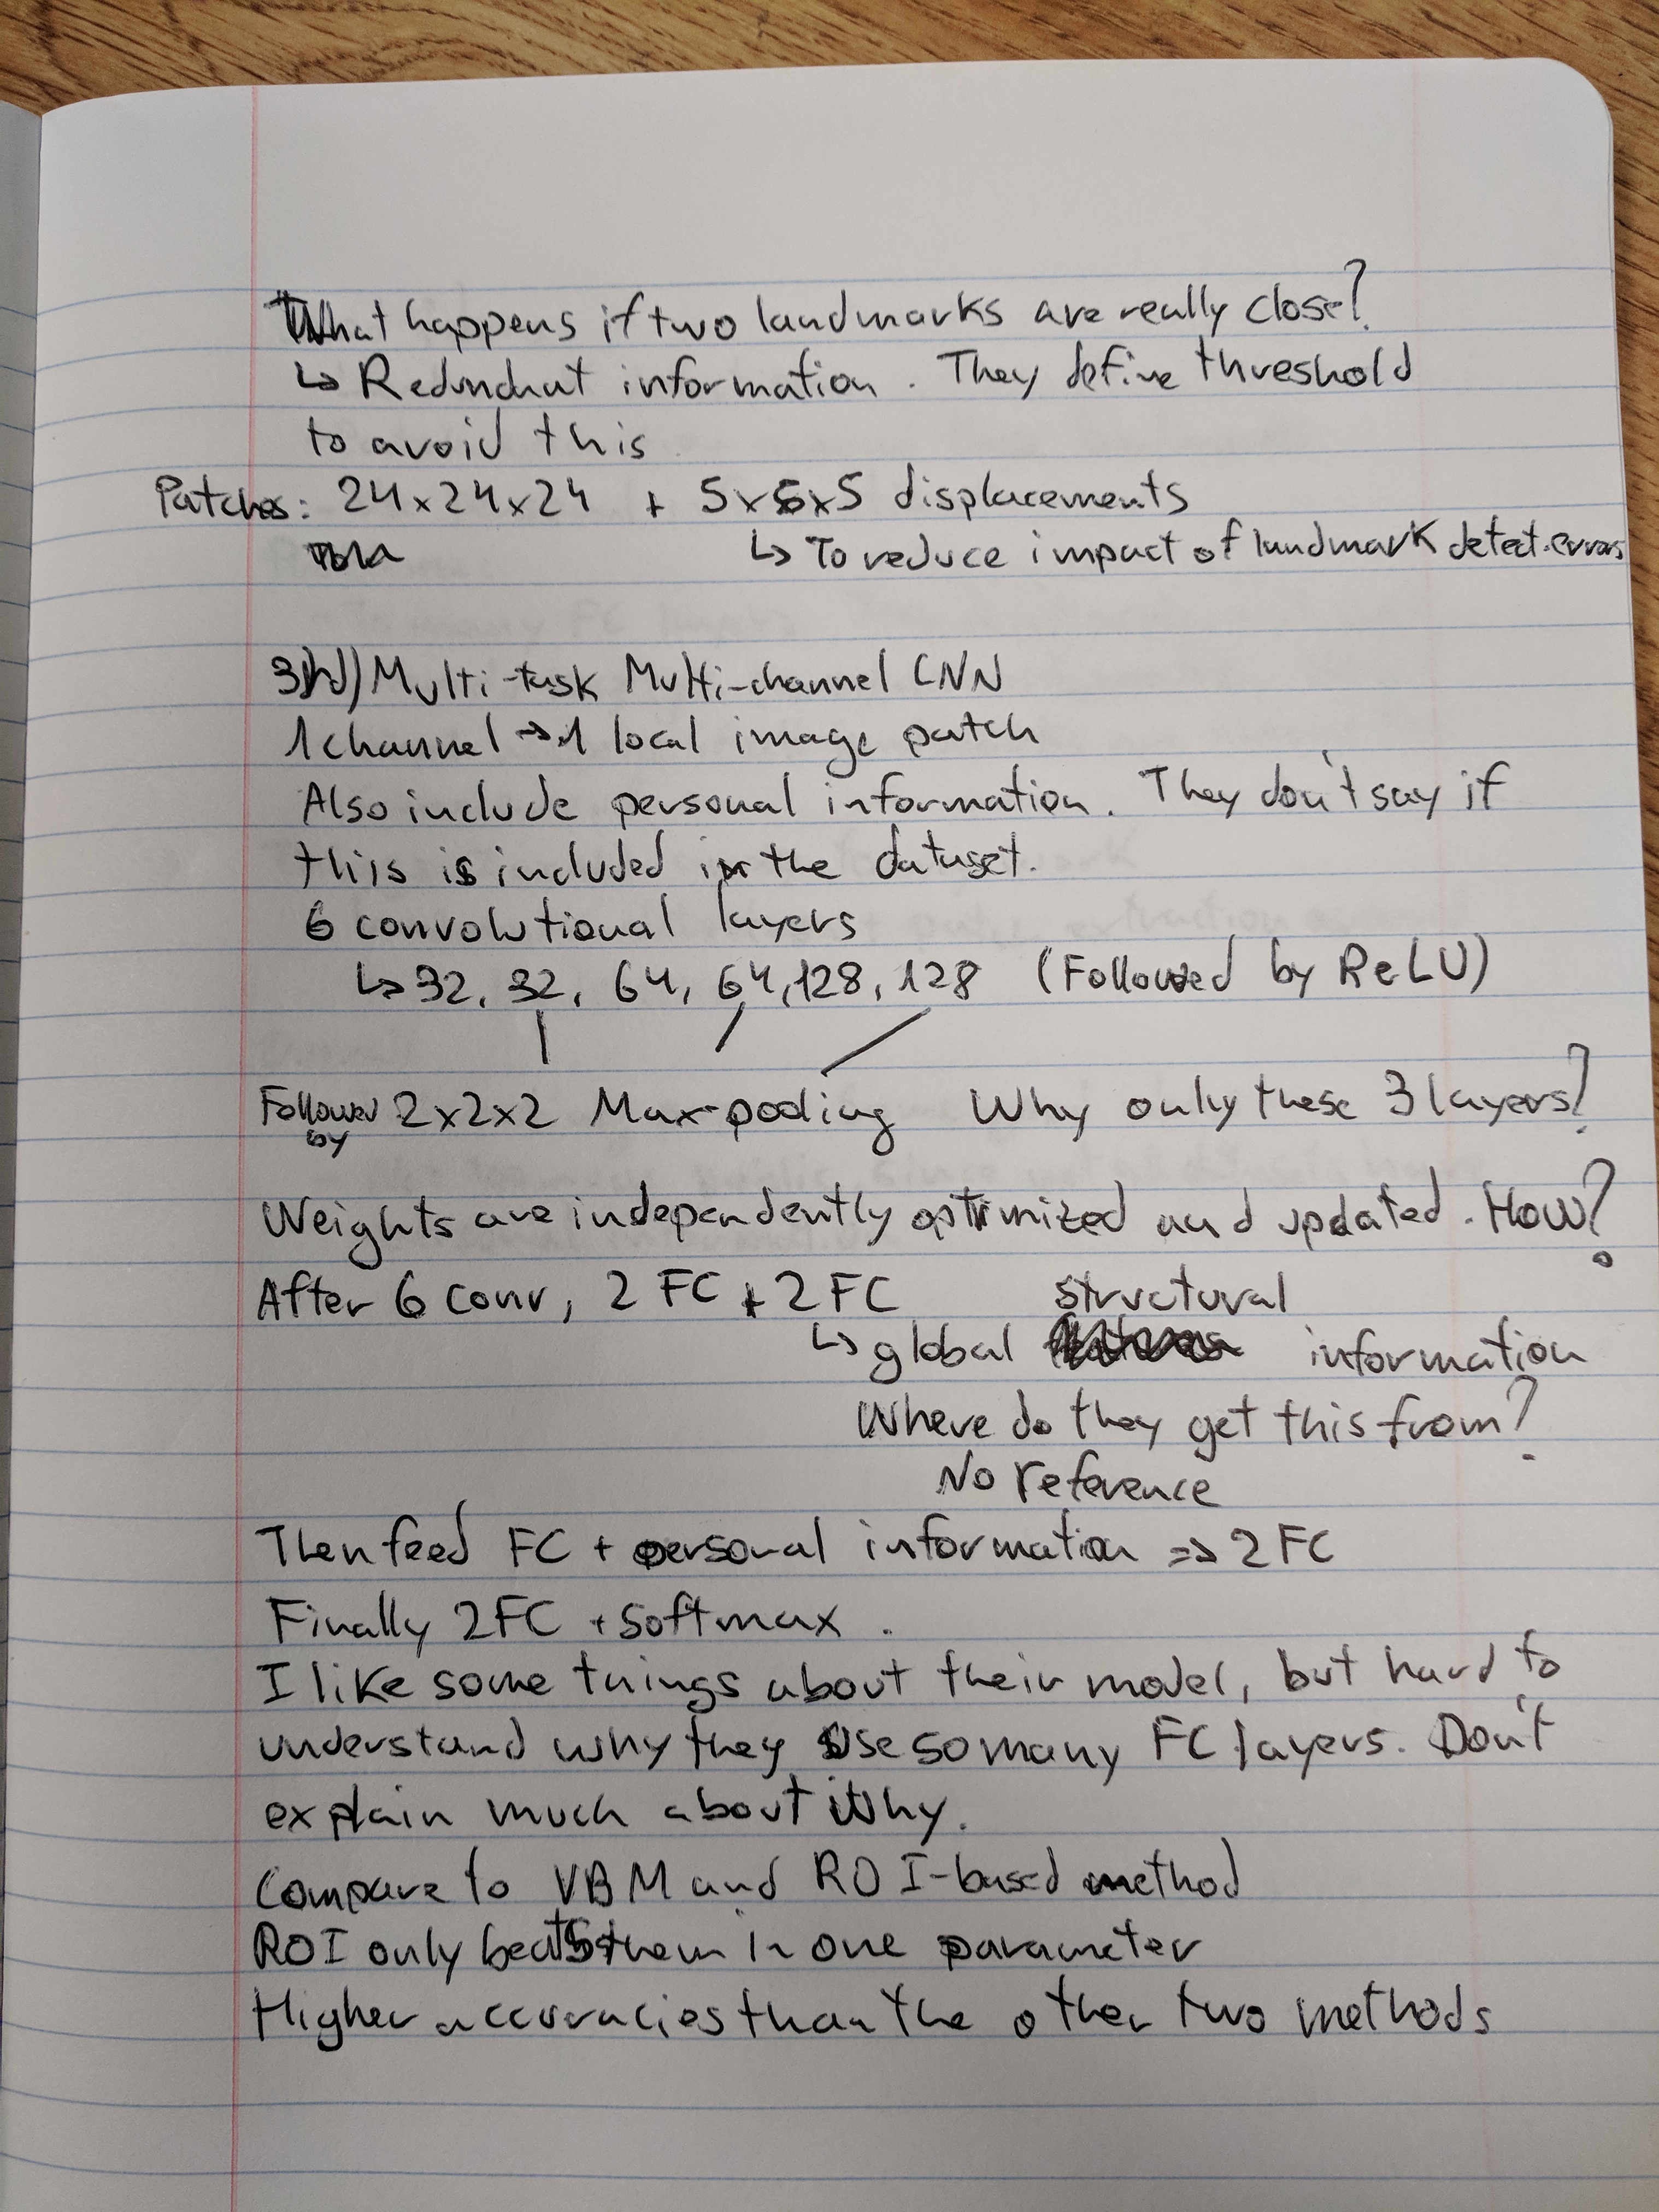 What happens if two landmarks are really close?
↳ Redundant information. They define threshold
to avoid this
Patches: 24x24x24 + 5x5x5 displacements
↳ To reduce impact of landmark detect. errors
Multi-task Multi-channel CNN
1 channel → 1 local image patch
Also include personal information. They don't say if
this is included in the dataset.
6 convolutional layers
↳ 32, 32, 64, 64, 128, 128 (Followed by ReLU)
Followed by 2x2x2 Max-pooling Why only these 3 layers?
Weights are independently optimized and updated. How?
After 6 conv, 2 FC + 2 FC
↳ global structural information
Where do they get this from?
No reference
Then feed FC + personal information => 2 FC
Finally 2FC + softmax.
I like some things about their model, but hard to
understand why they use so many FC layers. Don't
explain much about why.
Compare to VBM and ROI-based method
ROI only beats them in one parameter
Higher accuracies than the other two methods